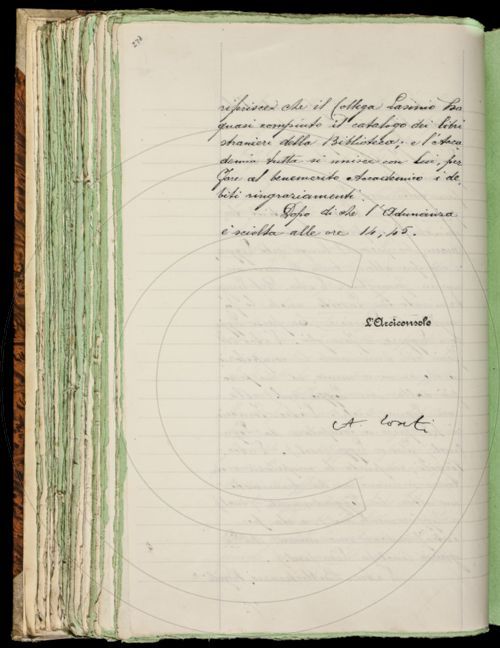 riferisce che il Collega Lasinio ha
quasi compiuto il catalogo dei libri
stranieri della Biblioteca; e l'Acca
demia tutta si unisce con Lui, per
fare al benemerito Accademico i de-
biti ringraziamenti.
Dopo di che l'Adunanza
è sciolta alle ore 14,45.
L'Arciconsolo
A Conti